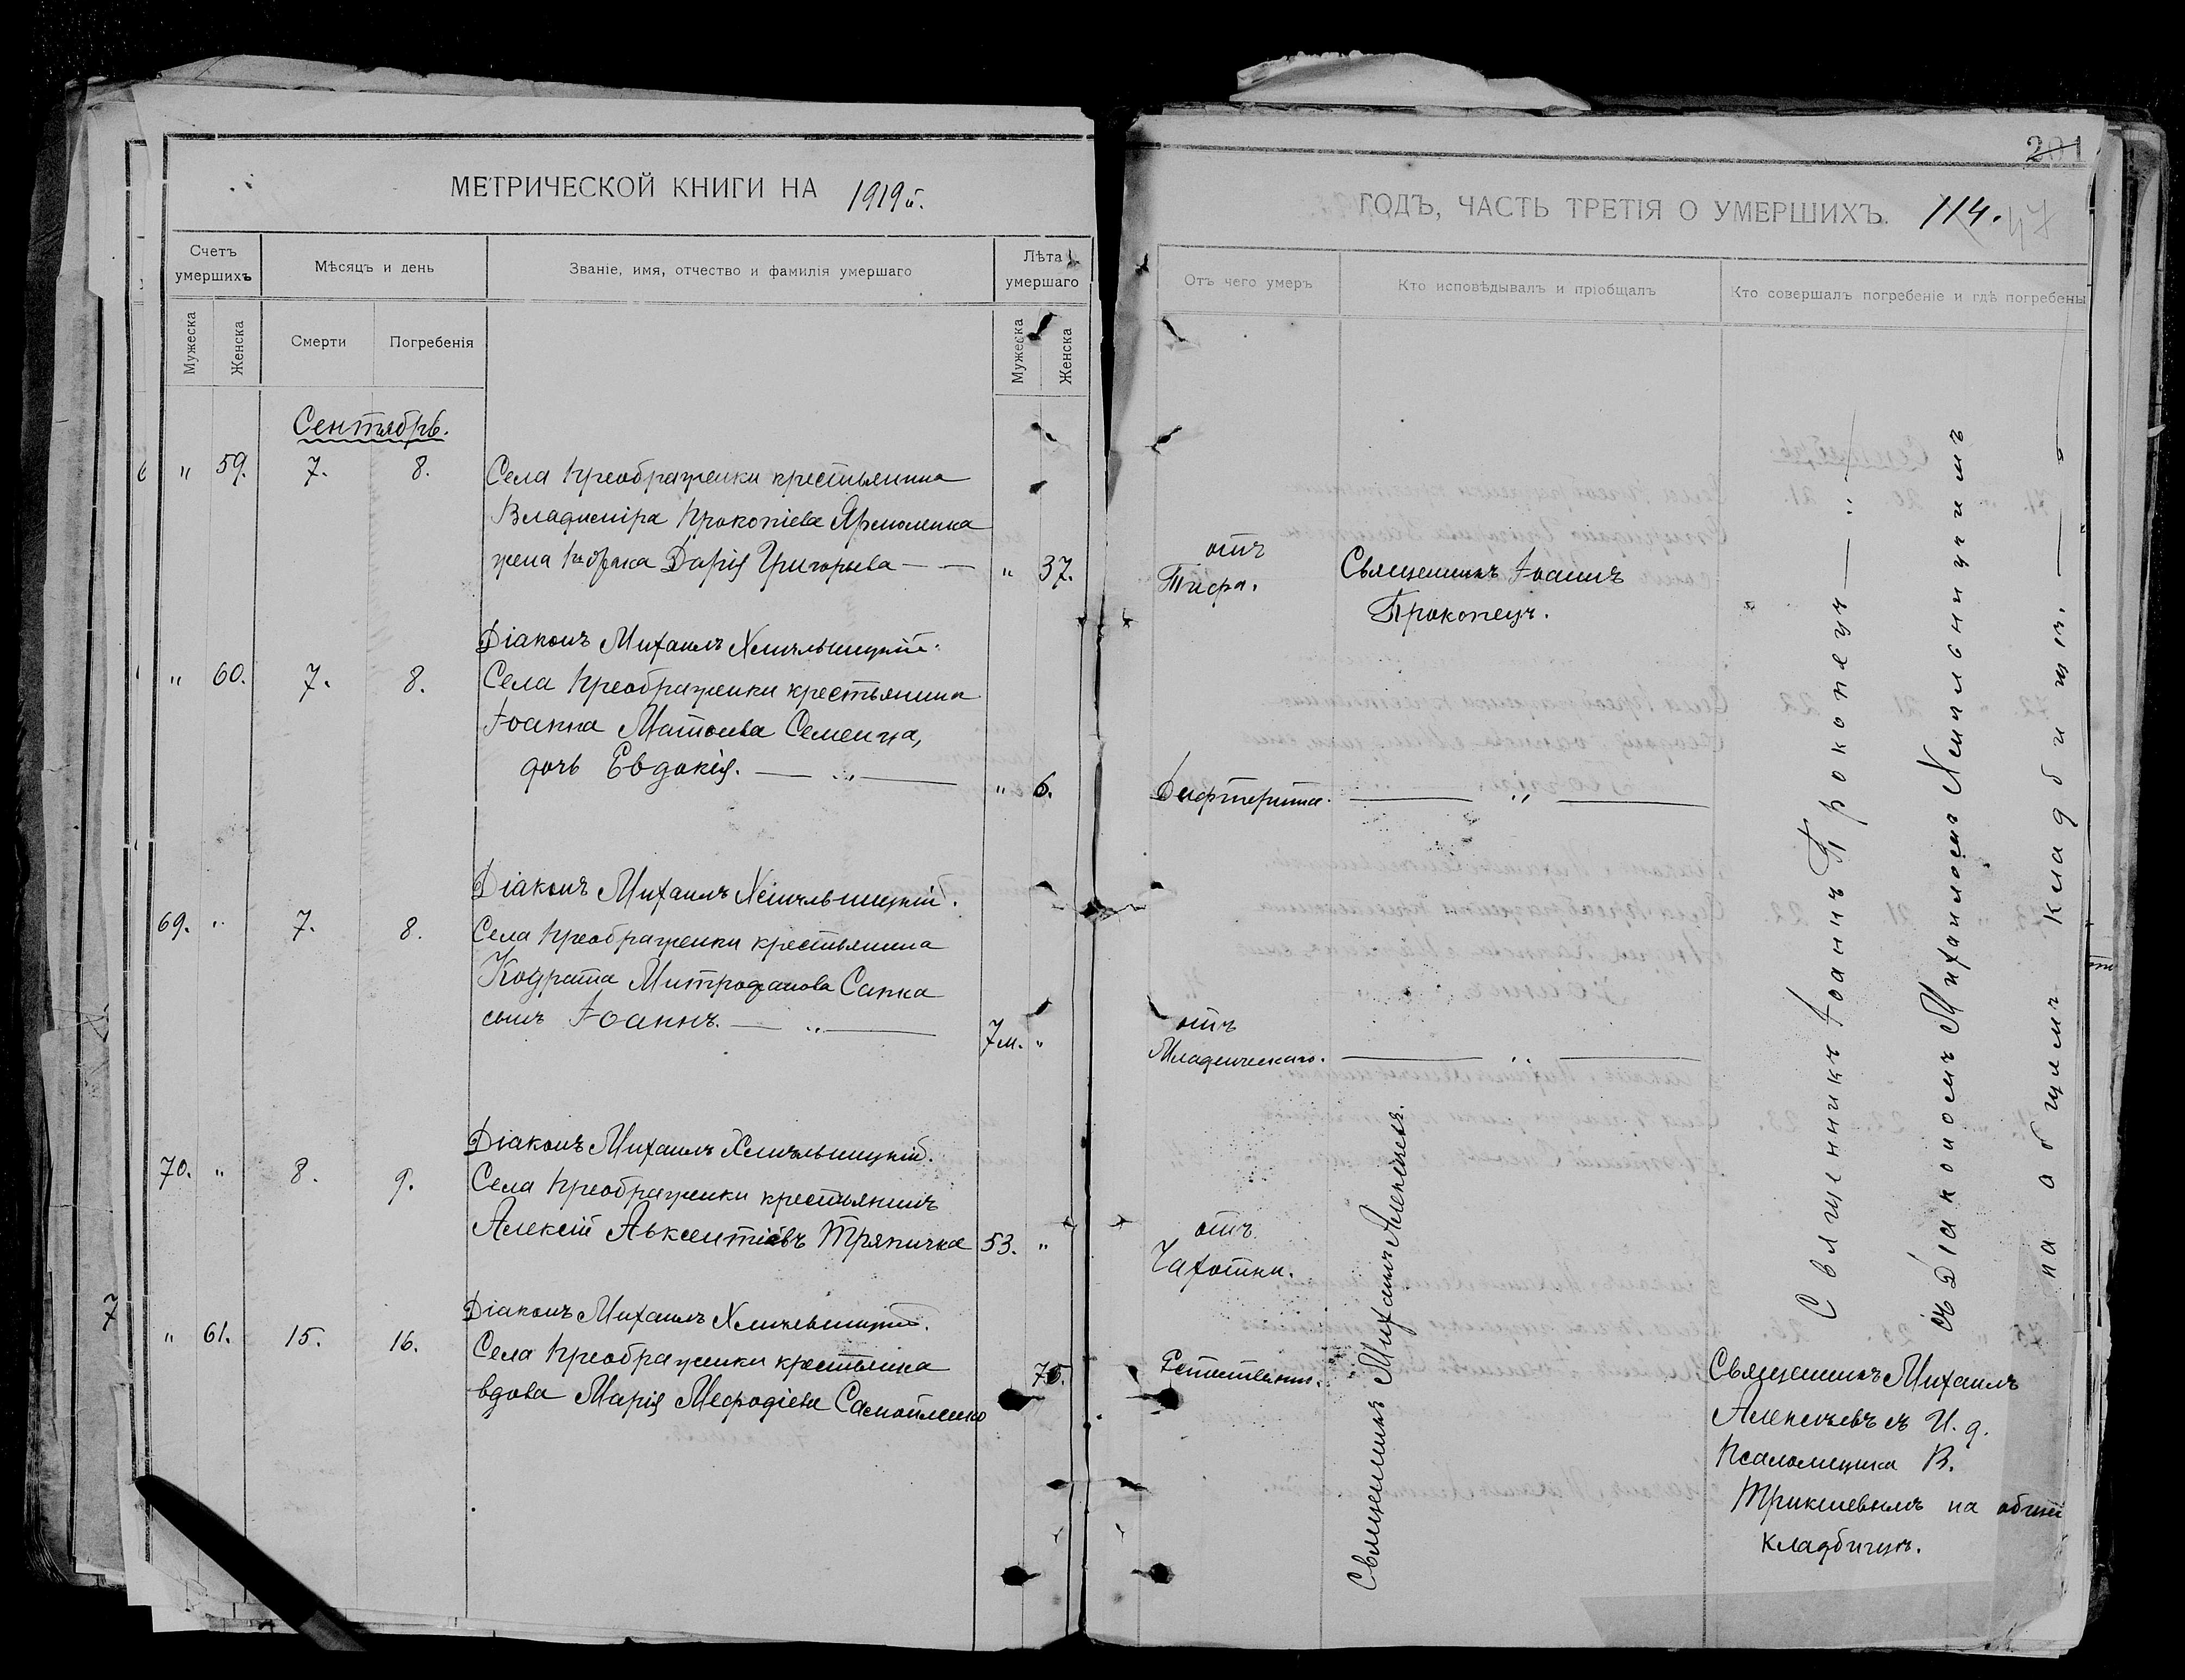 МЕТРИЧЕСКОЙ КНИГИ НА 1919 г.
Счетъ умершихъ
Мѣсяцъ и день
Званіе, имя, отчество и фамилія умершаго
Лѣта умершаго
Мужеска
Женска
Смерти
Погребенія
Мужеска
Женска
Сентябрь.
" 59. 7. 8. Села Преображенки крестьянина
Владиміра Прокопіева Ярмоленка
жена 1го брака Дарія Григорьева — — " 37.
Діаконъ Михаилъ Хмѣльницкій.
" 60. 7. 8. Села Преображенки крестьянина
Іоанна Матѳеева Семенца,
дочь Евдокія. — " — " 6.
Діаконъ Михаилъ Хмѣльницкій.
69. " 7. 8. Села Преображенки крестьянина
Кодрата Митрофанова Сапка
сынъ Іоаннъ. — " — 7 м. "
Діаконъ Михаилъ Хмѣльницкій.
70. " 8. 9. Села Преображенки крестьянинъ
Алексій Авксентіевъ Тряпичка 53. "
Діаконъ Михаилъ Хмѣльницкій.
" 61. 15. 16. Села Преображенки крестьянка
вдова Марія Меѳодіева Самойленко 75.
201
ГОДЪ, ЧАСТЬ ТРЕТІЯ О УМЕРШИХЪ. 114. 47
Отъ чего умеръ
Кто исповѣдывалъ и пріобщалъ
Кто совершалъ погребеніе и гдѣ погребены
отъ
Тифа.
Священникъ Іоаннъ
Прокопецъ.
Дифтерита. — " —
отъ
Младенческаго. — " —
отъ
Чахотки.
Естественно.
Священникъ Михаилъ Алексѣевъ.
Священникъ Іоаннъ Прокопецъ — " —
съ Діакономъ Михаиломъ Хмѣльницкимъ
на общемъ кладбищѣ. — " —
Священникъ Михаилъ
Алексѣевъ съ И. д.
Псаломщика В.
на общем
кладбищѣ.